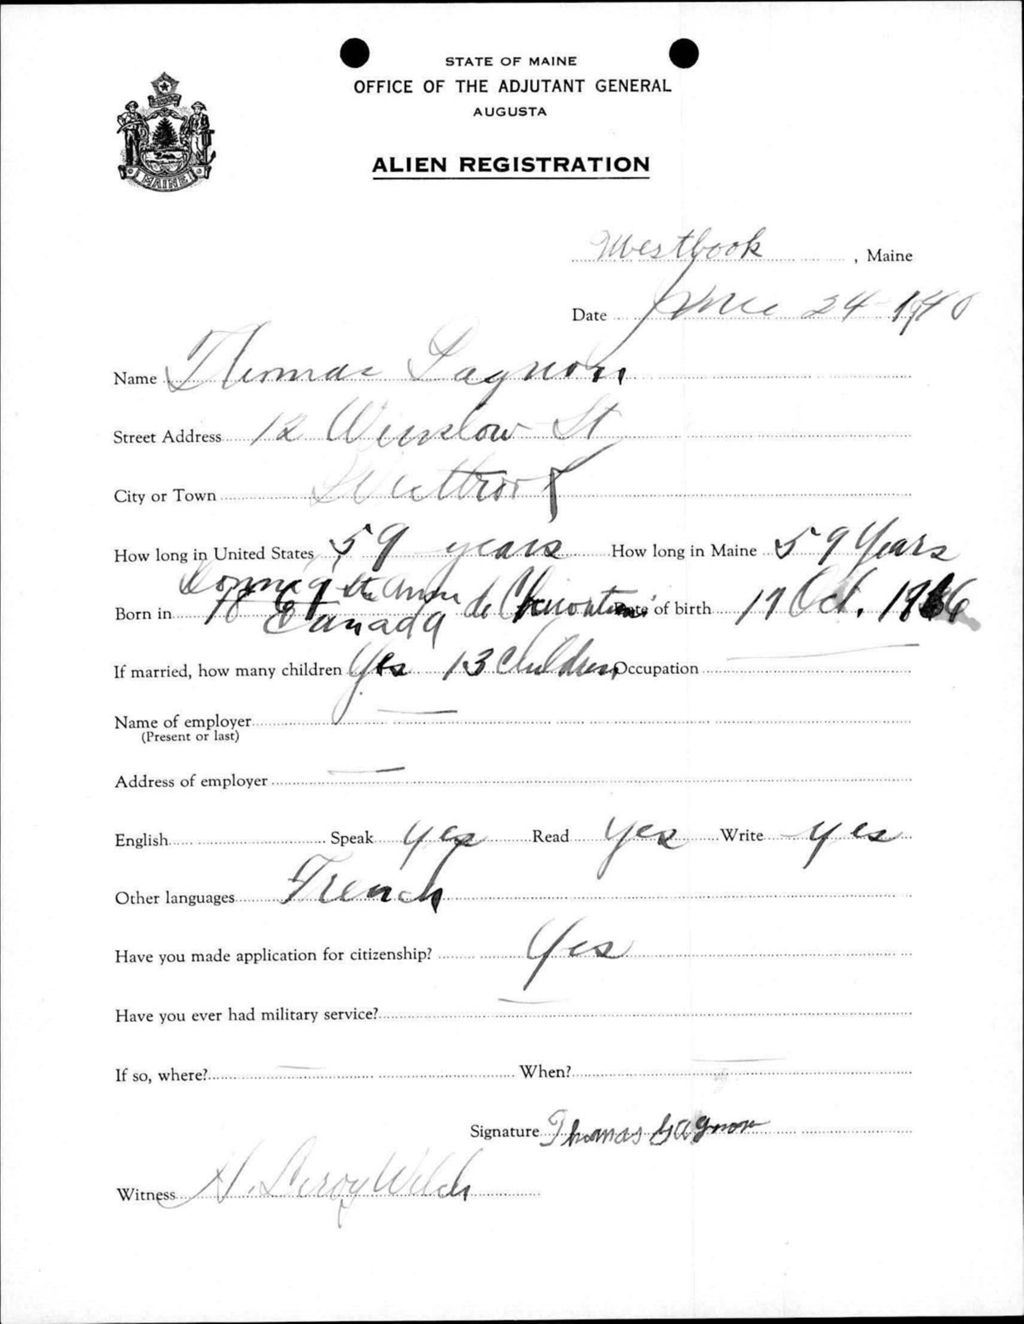 STATE OF MAINE
OFFICE OF THE ADJUTANT GENERAL
AUGUSTA
ALIEN REGISTRATION
MAINE
Westbook, Maine
Date June 24-1940
Name Thomas Gagnon
Street Address 12 Winslow St
City or Town Westbrook
How long in United States 59 years How long in Maine 59 Years
Born in Canada Date of birth 17 Oct. 1866
If married, how many children Yes 13 children Occupation
Name of employer
(Present or last)
Address of employer
English Speak yes Read yes Write yes
Other languages French
Have you made application for citizenship? Yes
Have you ever had military service?
If so, where? When?
Signature Thomas Gagnon
Witness H. Leroy Welch